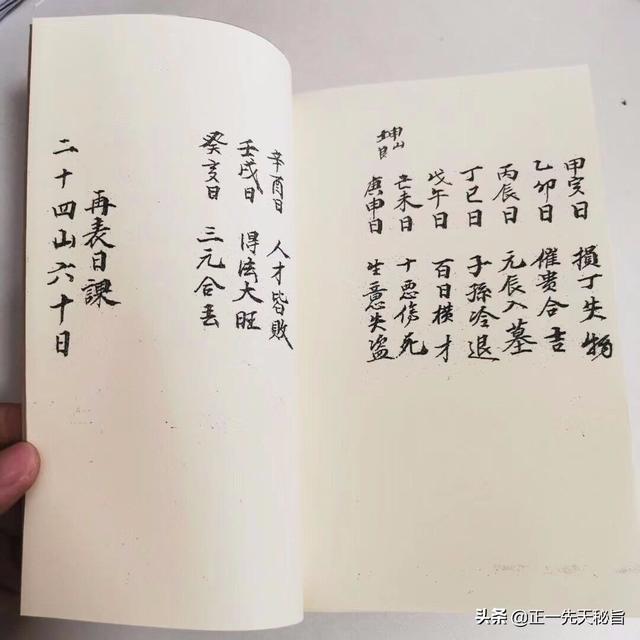 甲寅日 損丁失物
乙卯日 催贵合吉
丙辰日 元辰入墓
丁巳日 子孫冷退
戊午日 百日横才
己未日 十恶傷死
庚申日 生意失盗
坤山
辛酉日 人才皆敗
壬戌日 得法大旺
癸亥日 三元合
再表日課
二十四山六十日
头条 @正一先天秘旨